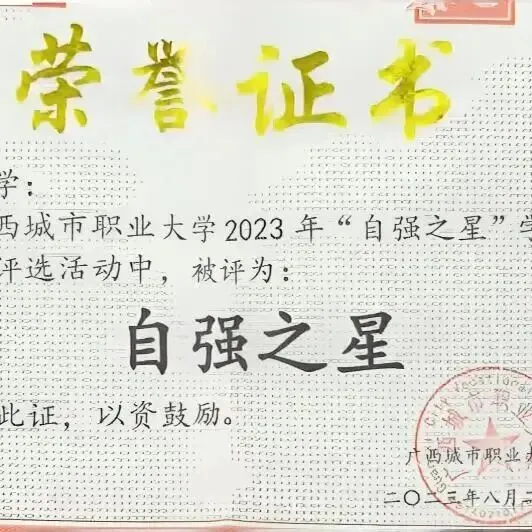 荣誉证书
学：
西城市职业大学2023年“自强之星”学
评选活动中，被评为：
自强之星
此证，以资鼓励。
广西城市职业大
二〇二三年八月二